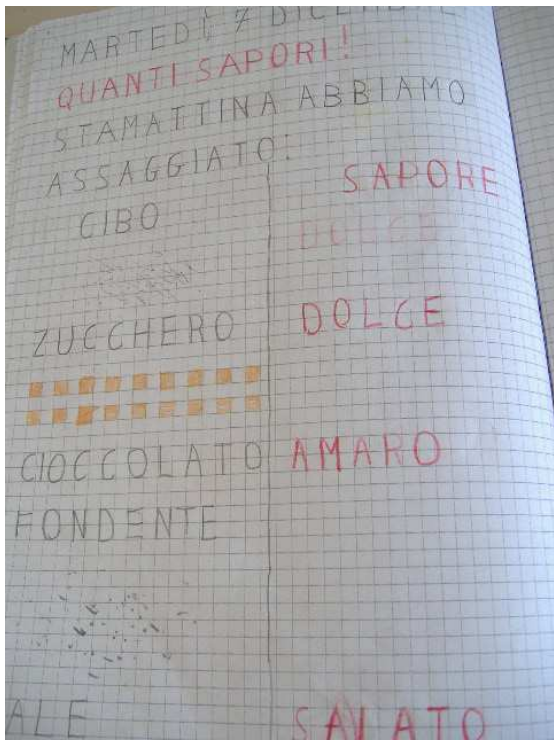 MARTEDÌ, 7 DICEMBRE
QUANTI SAPORI!
STAMATTINA ABBIAMO
ASSAGGIATO:
CIBO SAPORE
DOLCE
ZUCCHERO DOLCE
CIOCCOLATO AMARO
FONDENTE
ALE SALATO